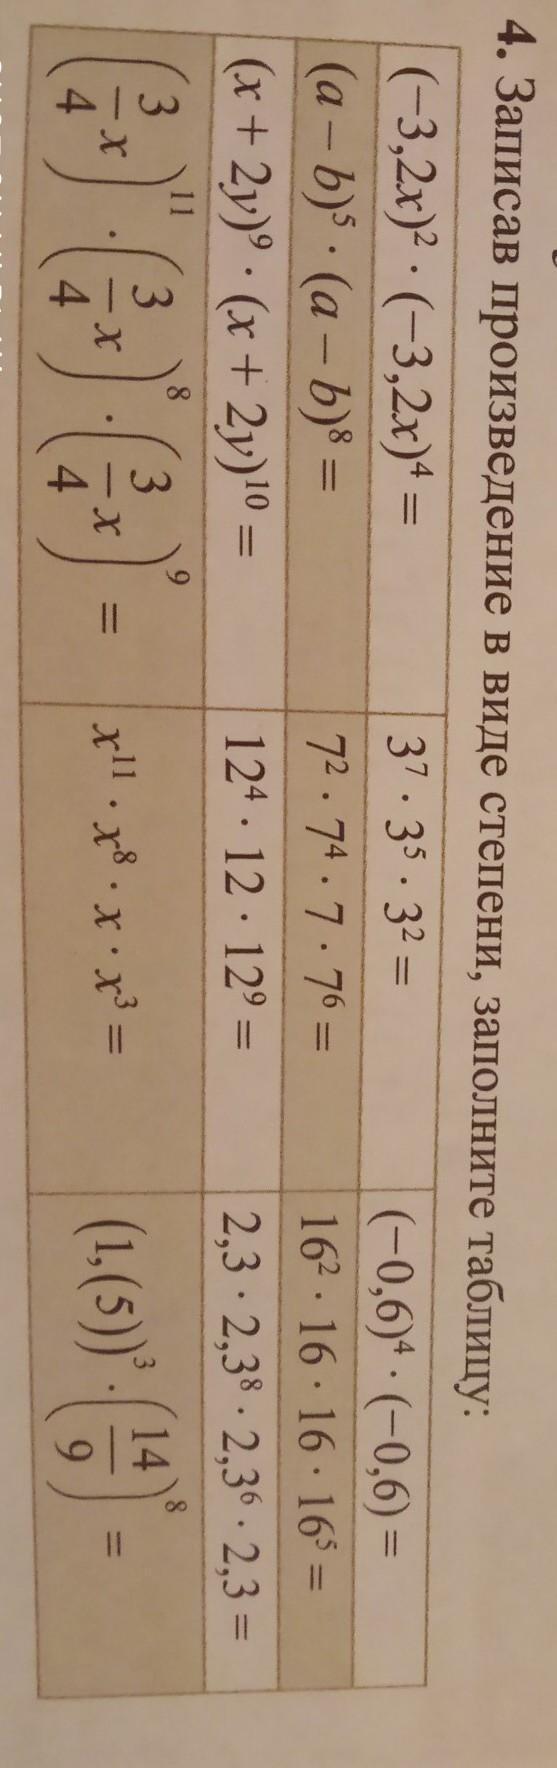 4. Записав произведение в виде степени, заполните таблицу:
(−3,2x)² · (−3,2x)⁴ = 3⁷ · 3⁵ · 3² = (−0,6)⁴ · (−0,6) =
(a − b)⁵ · (a − b)⁸ = 7² · 7⁴ · 7 · 7⁶ = 16² · 16 · 16 · 16⁵ =
(x + 2y)⁹ · (x + 2y)¹⁰ = 12⁴ · 12 · 12⁹ = 2,3 · 2,3⁸ · 2,3⁶ · 2,3 =
(3/4 x)¹¹ · (3/4 x)⁸ · (3/4 x)⁹ = x¹¹ · x⁸ · x · x³ = (1,(5))³ · (14/9)⁸ =